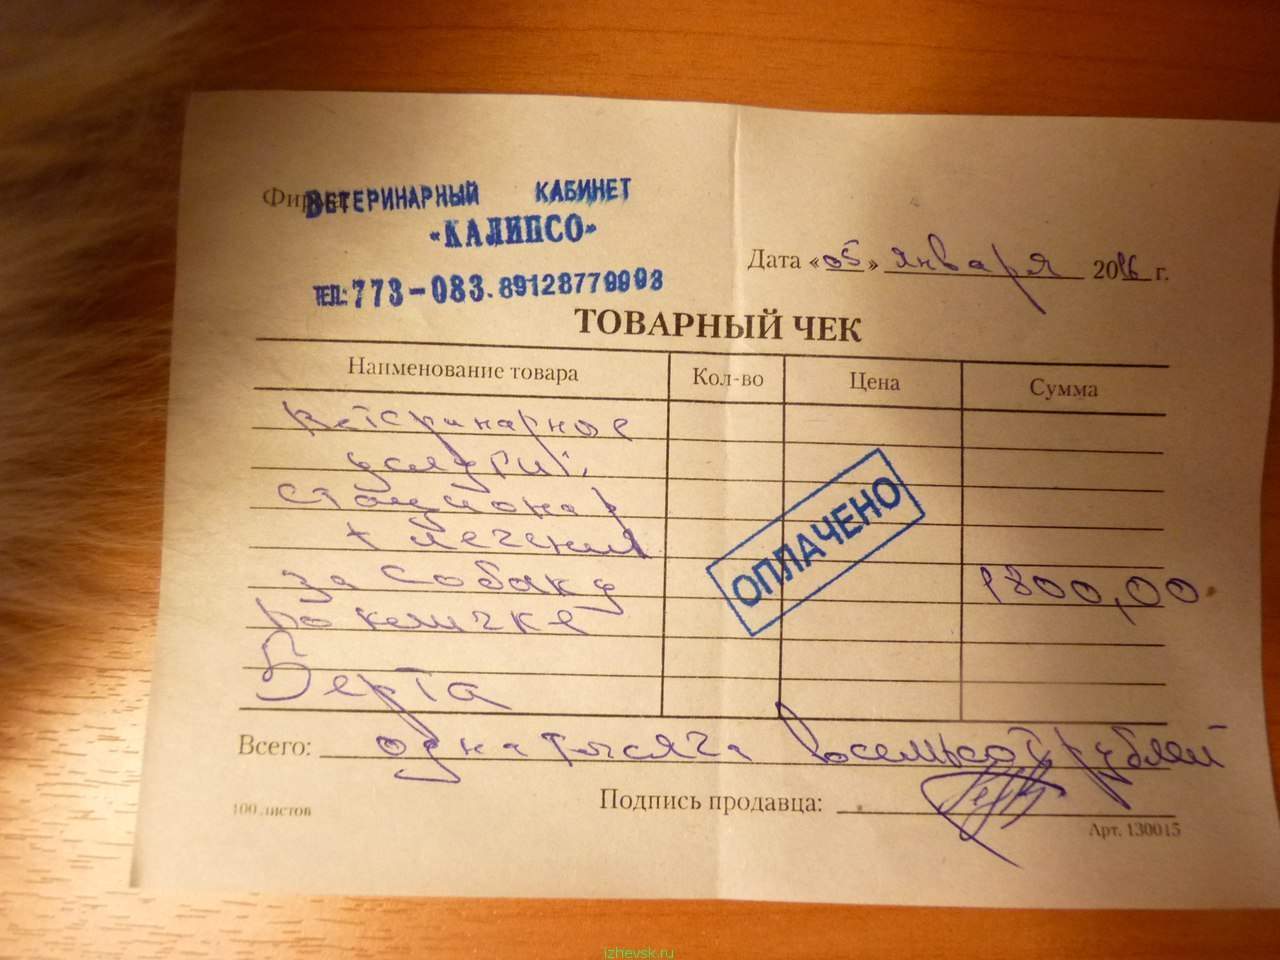 Фирма ВЕТЕРИНАРНЫЙ КАБИНЕТ
«КАЛИПСО»
ТЕЛ.: 773-083. 89128779993
Дата «05» января 2016 г.
ТОВАРНЫЙ ЧЕК
Наименование товара Кол-во Цена Сумма
ветеринарные
услуги.
стационар
+ лечения
за собаку 1800,00
по кличке
Берта
ОПЛАЧЕНО
Всего: одна тысяча восемьсот рублей
Подпись продавца:
100 листов
Арт. 130015
izhevsk.ru